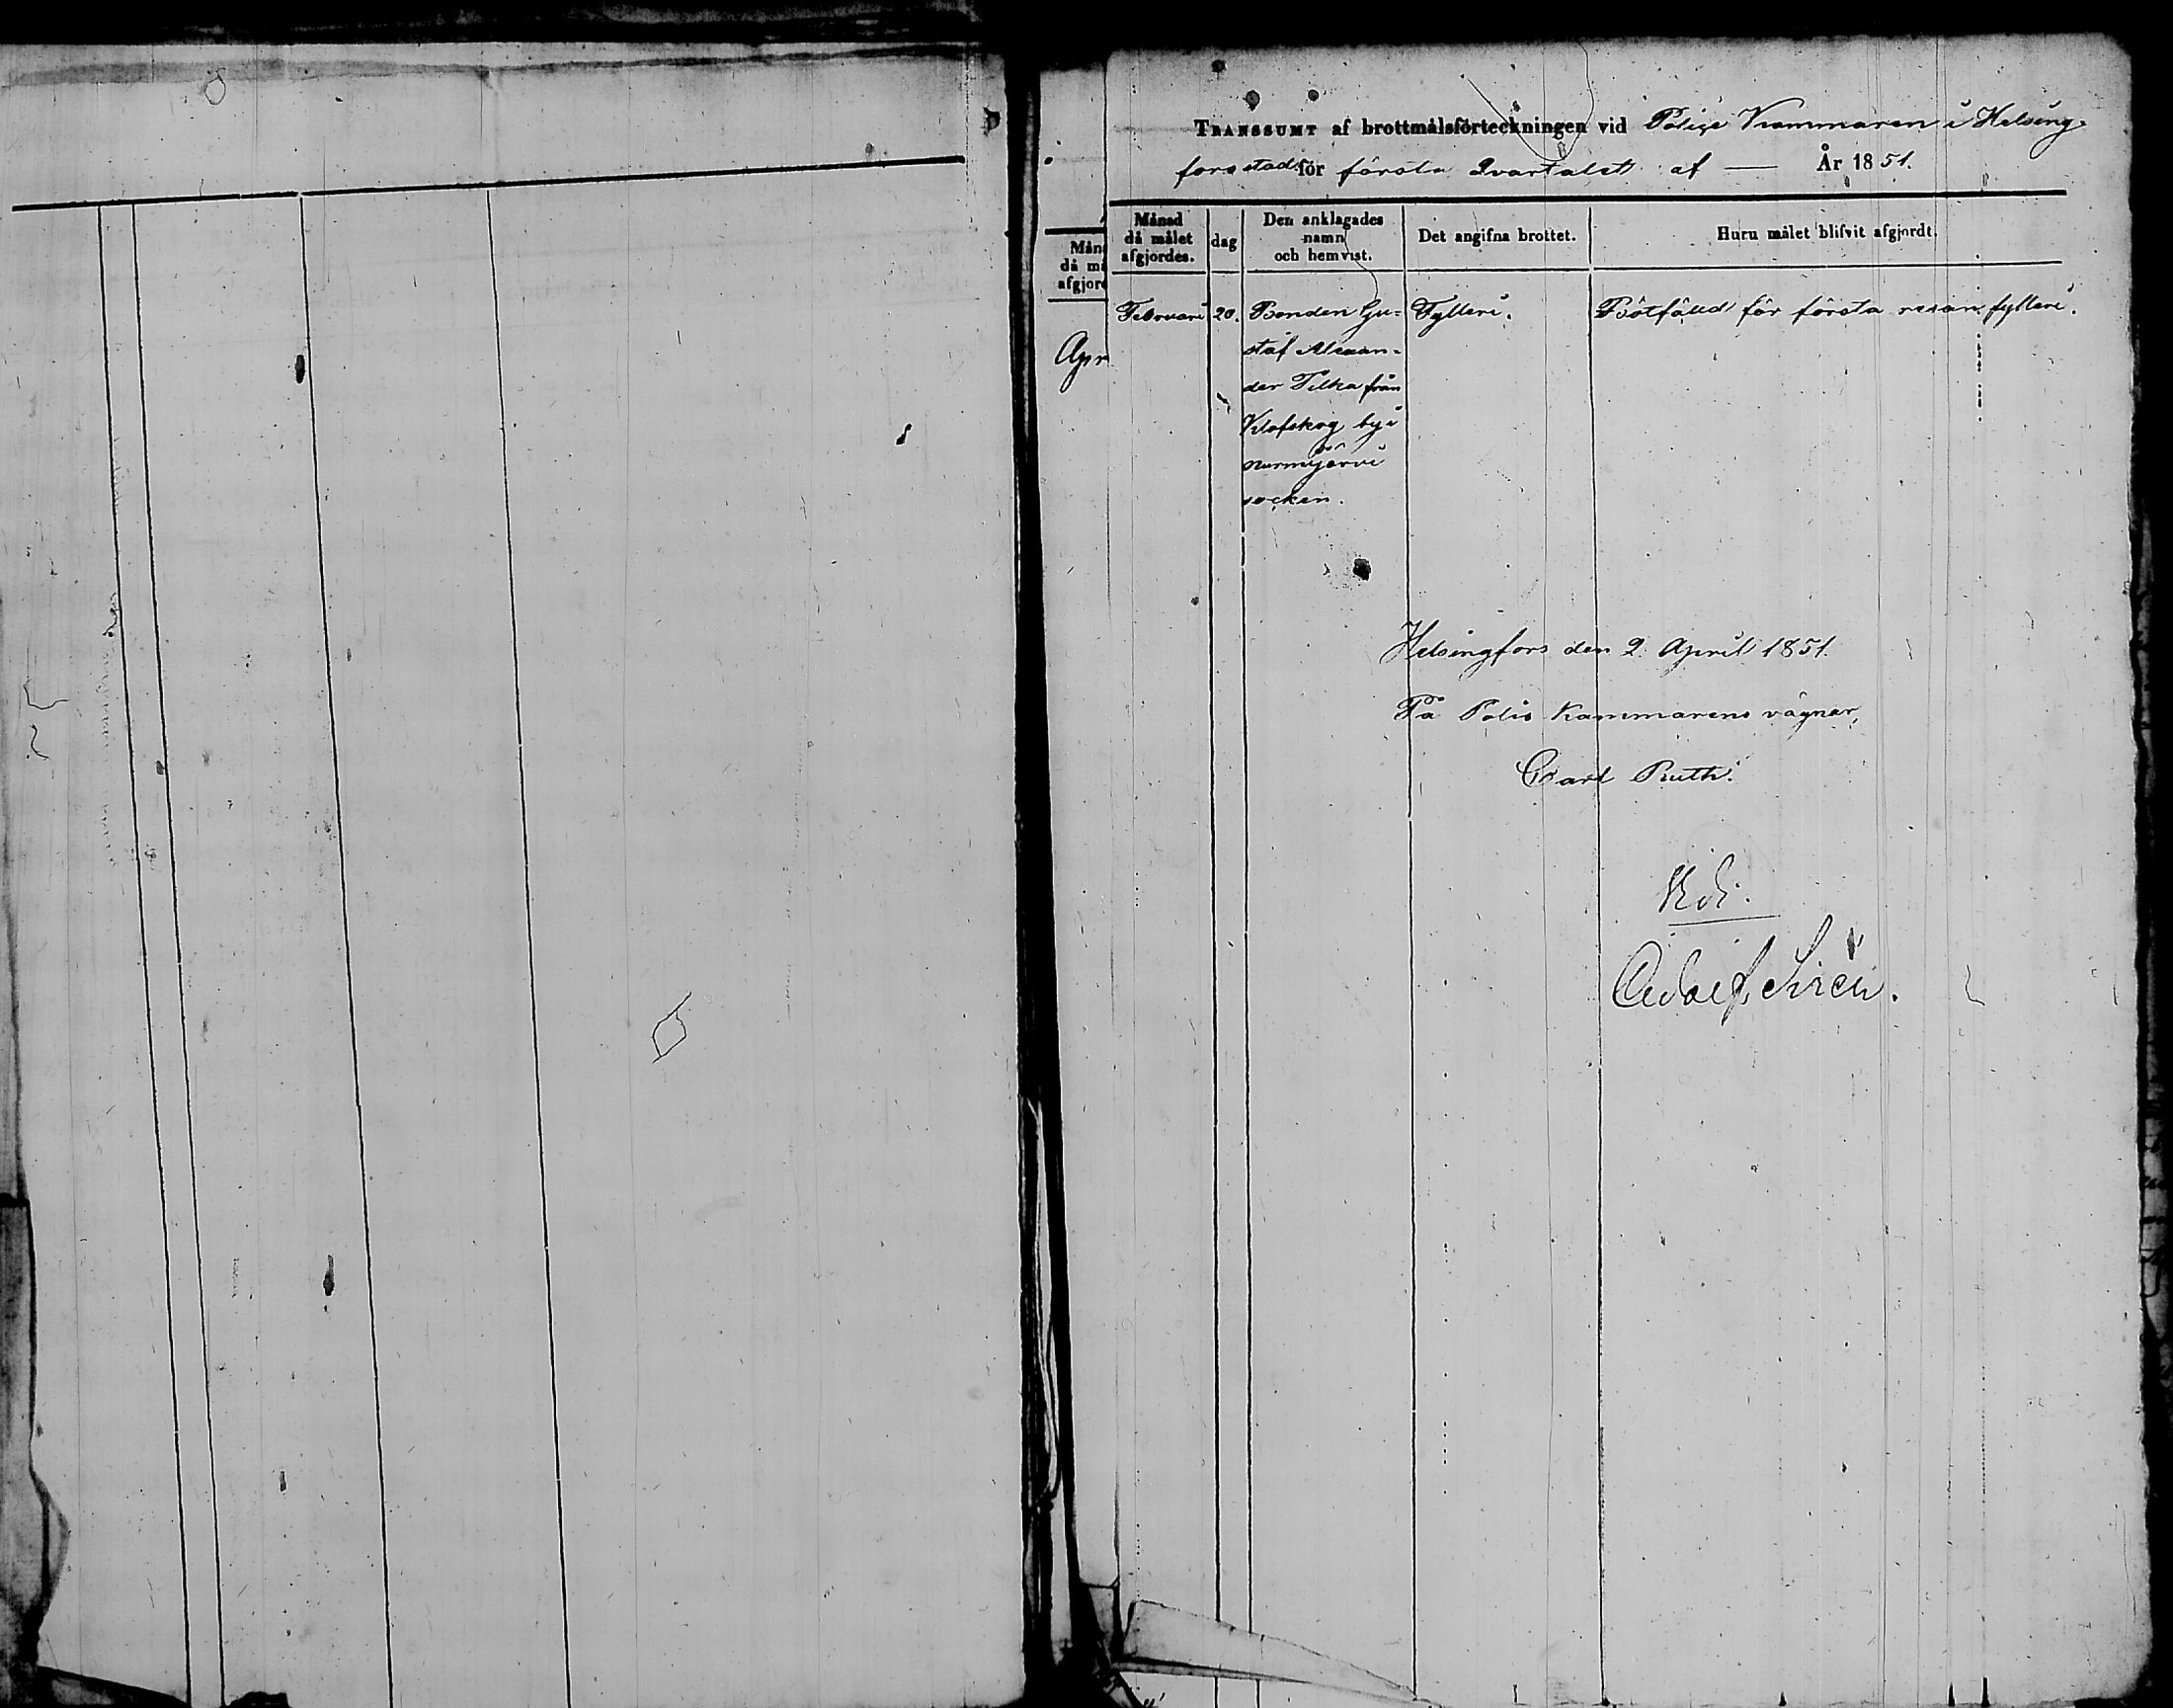 TRANSSUMT af brottmålsförteckningen vid Polise Kammaren i Helsing-
fors stad för första Qvartalet af — År 1851.
Månad då målet afgjordes.
dag
Den anklagades namn och hemvist.
Det angifna brottet.
Huru målet blifvit afgjordt.
Februari 20. Bonden Gu= Fylleri. Bötfälld för första resan fylleri.
staf Alexan-
der Tilka från
Klofskog by i
Nurmijärvi
socken.
Helsingfors den 2 April 1851.
På Polis Kammarens vägnar,
Carl Ruth.
Adolf Sirén.
Mån
då må
afgjord
Apr